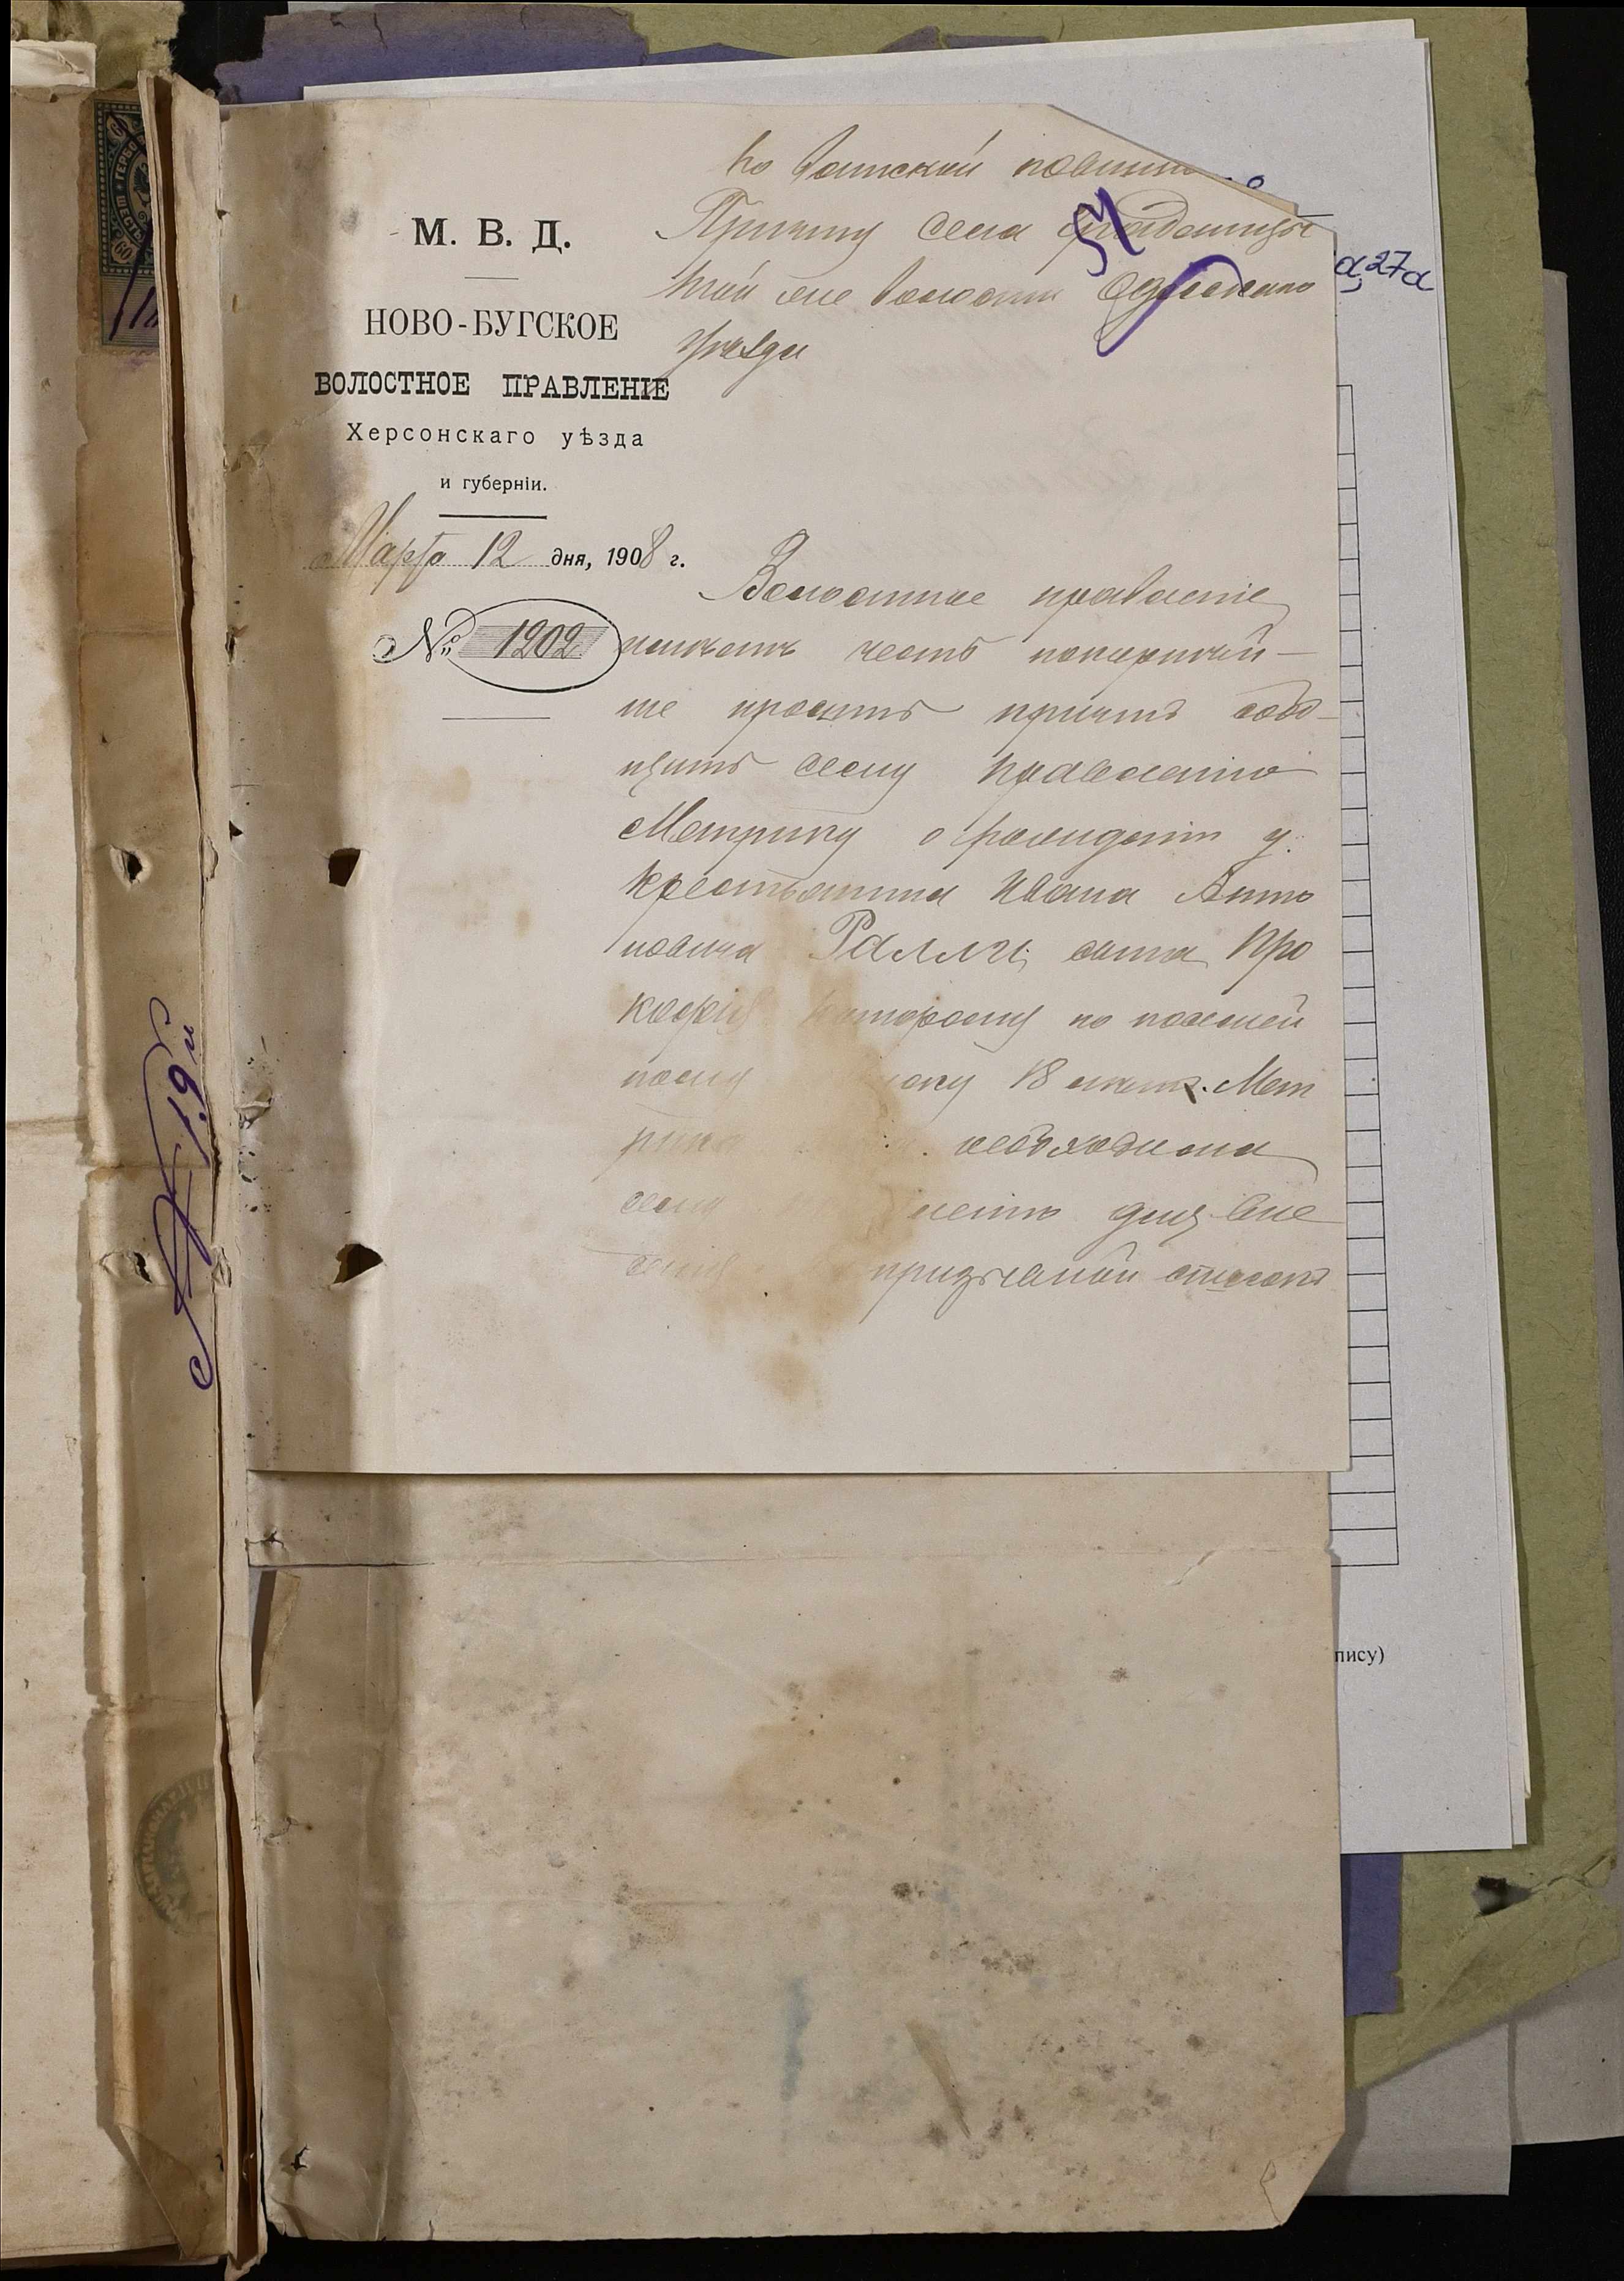 По воинской повинно
Причту села
М. В. Д.
кой же волости Одесскаго
уѣзда
НОВО-БУГСКОЕ
ВОЛОСТНОЕ ПРАВЛЕНІЕ
Херсонскаго уѣзда
и губерніи.
Марта 12 дня, 1908 г.
№ 1202
Волостное правленіе
имѣетъ честь покорнѣй-
ше просить причтъ сооб-
щить сему правленію
Метрику о рожденіи у
крестьянина Ивана Анто
новича Ралли, сына Про
кофія которому по посемей
ному 18 лѣтъ. Мет
рика необходима
сему ленію для вне
сенія призывной списокъ
57
27а
19 г.
пису)